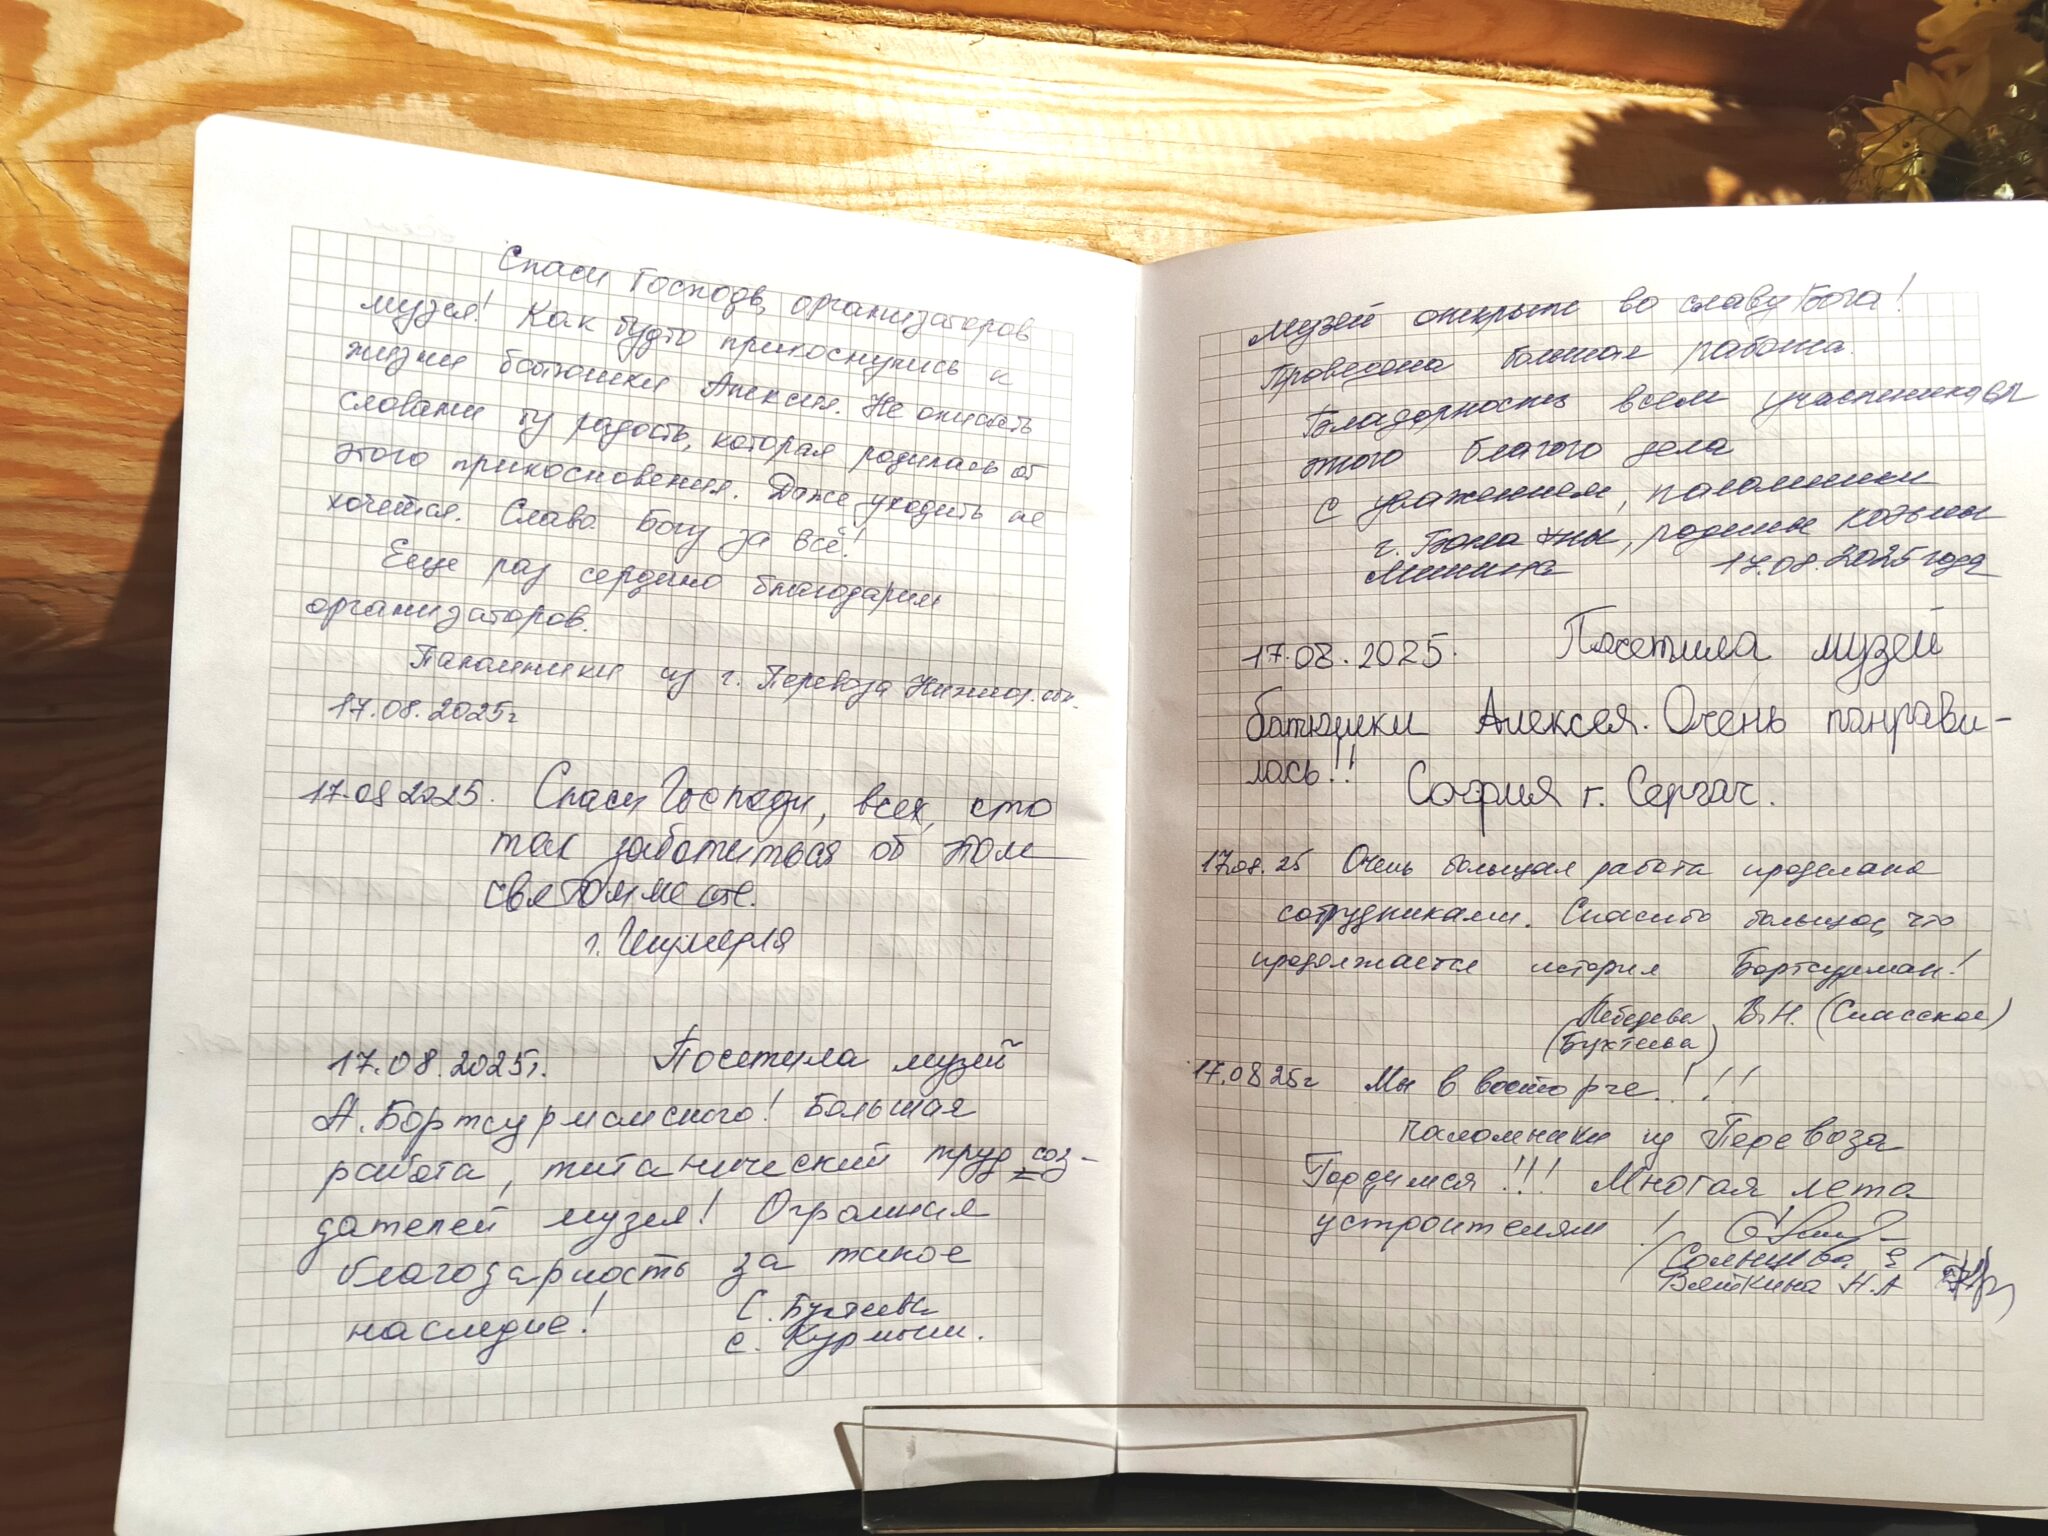 Спаси Господь организаторов
музея! Как будто прикоснулись к
жизни батюшки Алексия. Не описать
словами ту радость, которая родилась от
этого прикосновения. Даже уходить не
хочется. Слава Богу за всё!
Еще раз сердечно благодарим
организаторов.
Паломники из г. Перевоза Нижегор. обл.
17.08.2025г
17.08 2025. Спаси Господи, всех, кто
так заботиться об этом
святом месте.
г. Шумерля
17.08.2025г. Посетила музей
А. Бортсурманского! Большая
работа, титанический труд соз-
дателей музея! Огромная
благодарность за такое
наследие!
с. Курмыш.
Музей открыт во славу Бога!
Проведена большая работа.
Благодарность всем участникам
этого благого дела
С уважением, паломники
г. Балахны, родины Козьмы
Минина 17.08.2025 года
17.08.2025. Посетила музей
батюшки Алексея. Очень понрави-
лось!! София г. Сергач.
17.08.25 Очень большая работа проделана
сотрудниками. Спасибо большое, что
продолжается история Бортсурман!
Лебедева В.Н. (Спасское)
(Бухтеева)
17.08 25г Мы в восторге!!!
паломники из Перевоза
Гордимся!!! Многая лета
устроителям!
Солнцева
Вяткина Н.А